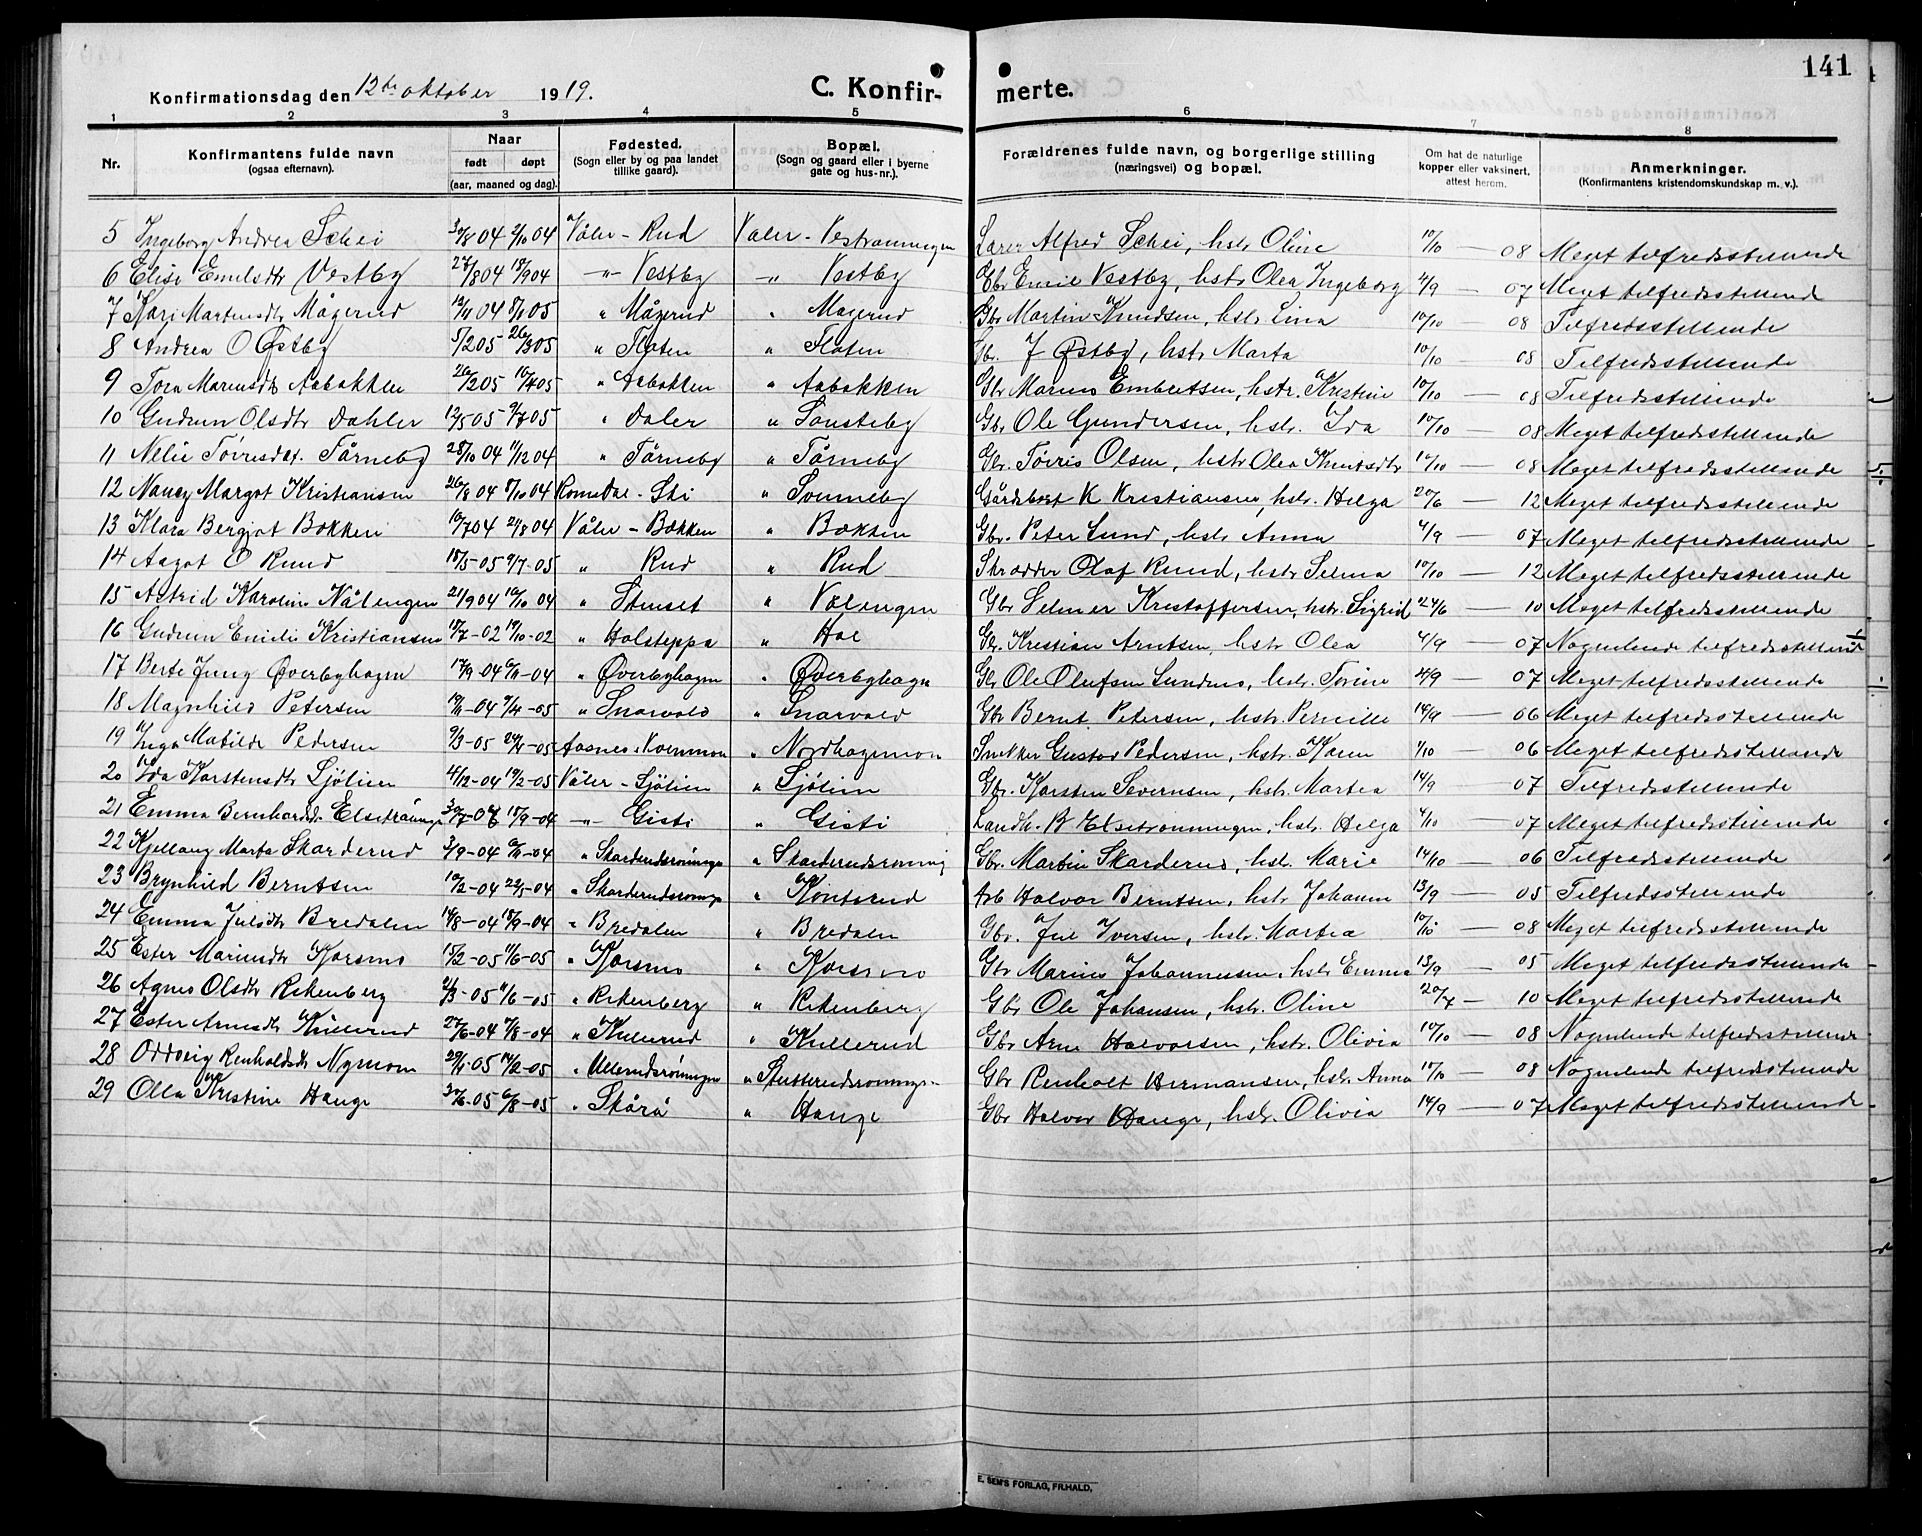 141
Konfirmationsdag den 12te oktober 1919. C. Konfirmerte.
1 2 3 4 5 6 7 8
Nr. Konfirmantens fulde navn (ogsaa efternavn). Naar født døpt (aar, maaned og dag). Fødested. (Sogn eller by og paa landet tillike gaard). Bopæl. (Sogn og gaard eller i byerne gate og hus-nr.). Forældrenes fulde navn, og borgerlige stilling (næringsvei) og bopæl. Om hat de naturlige kopper eller vaksinert, attest herom. Anmerkninger. (Konfirmantens kristendomskundskap m. v.).
5 Ingeborg Andrea Schei 30/8 04 2/10 04 Våler - Rud Våler - Lærer Alfred Schei, hstr Oline 10/10 — 08 Meget tilfredsstillende
6 Elise Emilsdtr Vestby 27/8 04 18/9 04 -„- Vestby -„- Vestby Gbr Emil Vestby, hstr Olea Ingeborg 4/9 — 07 Meget tilfredsstillende
7 Kari Martinsdtr Mågerud 8/1 05 „ Mågerud „ Mågerud Gbr Martin Knudsen, hstr Lina 10/10 — 08 Tilfredsstillende
8 Andrea O Østby 5/2 05 26/3 05 „ Floten „ Floten Gb. J Østby, hstr Marta 10/10 — 08 Tilfredsstillende
9 Tora Mariusdtr Aabakken 26/2 05 16/4 05 „ Aabakken „ Aabakken Gbr Marius Embretsen, hstr. Kristine 10/10 — 08 Tilfredsstillende
10 Gudrun Olsdtr Dahler 12/5 05 9/7 05 „ Daler „ Sønsteby Gbr Ole Gundersen, hstr. Ida 10/10 — 08 Meget tilfredsstillende
11 Nelie Tørresdtr. Tårneby 28/10 04 11/12 04 „ Tårneby „ Tårneby Gbr. Olsen, hstr Olea Knudsdtr 10/10 — 08 Meget tilfredsstillende
12 Nancy Margot Kristiansen 26/8 04 8/10 04 Romedal - Ski „ Sønneby K Kristiansen, hstr. Helga 20/6 — 12 Meget tilfredsstillende
13 Klara Bergjot Bakken 10/7 04 21/8 04 Våler - Bakken „ Bakken Gbr. Peter Lund, hstr Anna 4/9 — 07 Meget tilfredsstillende
14 Aagot O Ruud 18/5-05 9/7-05 „ Rud „ Rud Skrædder Olaf Ruud, hstr Selma 10/10 — 12 Meget tilfredsstillende
15 Astrid Karoline Vålengen 21/9 04 16/10 04 „ Stenset „ Vålengen Gbr Selmer Kristoffersen, hstr. Sigrid 24/6 — 10 Meget tilfredsstillende
16 Gudrun Emilie Kristiansen 18/7-02 19/10-02 „ Holsteppa „ Hol Gbr. Kristian Arntsen, hstr Olea 4/9 — 07 Nogenlunde tilfredsstillende
17 Berte Jenny Øverbyhagen 17/9-04 6/11-04 „ Øverbyhagen „ Øverbyhagen Gbr Ole Olufsen hstr. Torine 4/9 — 07 Meget tilfredsstillende
18 Magnhild Petersen „ Snarvold „ Snarvold Gbr Bernt Petersen, hstr. Pernille 14/9 — 06 Meget tilfredsstillende
19 Inga Matilde Pedersen 9/3-05 Aasnes - Kvernmoen „ Nordhagemoen Snekker Gustav Pedersen, hstr. Karen 1/10 — 06 Meget tilfredsstillende
20 Ida Karstensdtr Sjølien 4/12-04 19/2-05 Våler - Sjølien „ Sjølien Gbr. Karsten Severinsen, hstr. Martea 14/9 — 07 Tilfredsstillende
21 Emma Bernhardsdtr 30/7-04 18/9-04 -„- Gisti „ Gisti Landh. B Elsetrønningen, hstr. Helga 4/10 — 07 Meget tilfredsstillende
22 Kjellaug Marta Skarderud 3/9-04 6/11-04 „ Skarderudsrønningen „ Skarderudsrønning Gbr. Martin Skarderud, hstr. Marie 14/10 — 06 Tilfredsstillende
23 Brynhild Berntsen 10/2-04 22/5-04 „ Skarderudsrønningen „ Kontrud Arb Halvor Berntsen, hstr Johanne 13/9 — 05 Tilfredsstillende
24 Emma Julsdtr Bredalen 14/8-04 18/9-04 „ Bredalen „ Bredalen Gbr. Jul Iversen, hstr. Martea 10/10 — 08 Meget tilfredsstillende
25 Ester Mariusdtr Korsmo 15/2-05 11/6-05 „ Korsmo „ Korsmo Gbr Marius Johannessen, hstr Emma 13/9 — 05 Meget tilfredsstillende
26 Agnes Olsdtr Rekenberg 2/3-05 11/6-05 „ Rekenberg „ Rekenberg Gbr Ole Johansen, hstr. Oline 20/7 — 10 Meget tilfredsstillende
27 Ester Arnesdtr Kullerud 27/6-04 7/8-04 „ Kullerud „ Kullerud Gbr Arne Halvorsen, hstr. Olivia 10/10 — 08 Nogenlunde tilfredsstillende
28 Oddveig Renholdsdtr Nymoen 29/1-05 „ Ullerudsrønningen „ Gbr Renholt Hermansen, hstr. Anna 10/10 — 08 Nogenlunde tilfredsstillende
29 Olla Kristine Hauge 30/6-05 6/8-05 „ Skårå „ Hauge Gbr Halvor Hauge, hstr. Olivia 14/9 — 07 Meget tilfredsstillende
E. SEM'S FORLAG, FR.HALD.